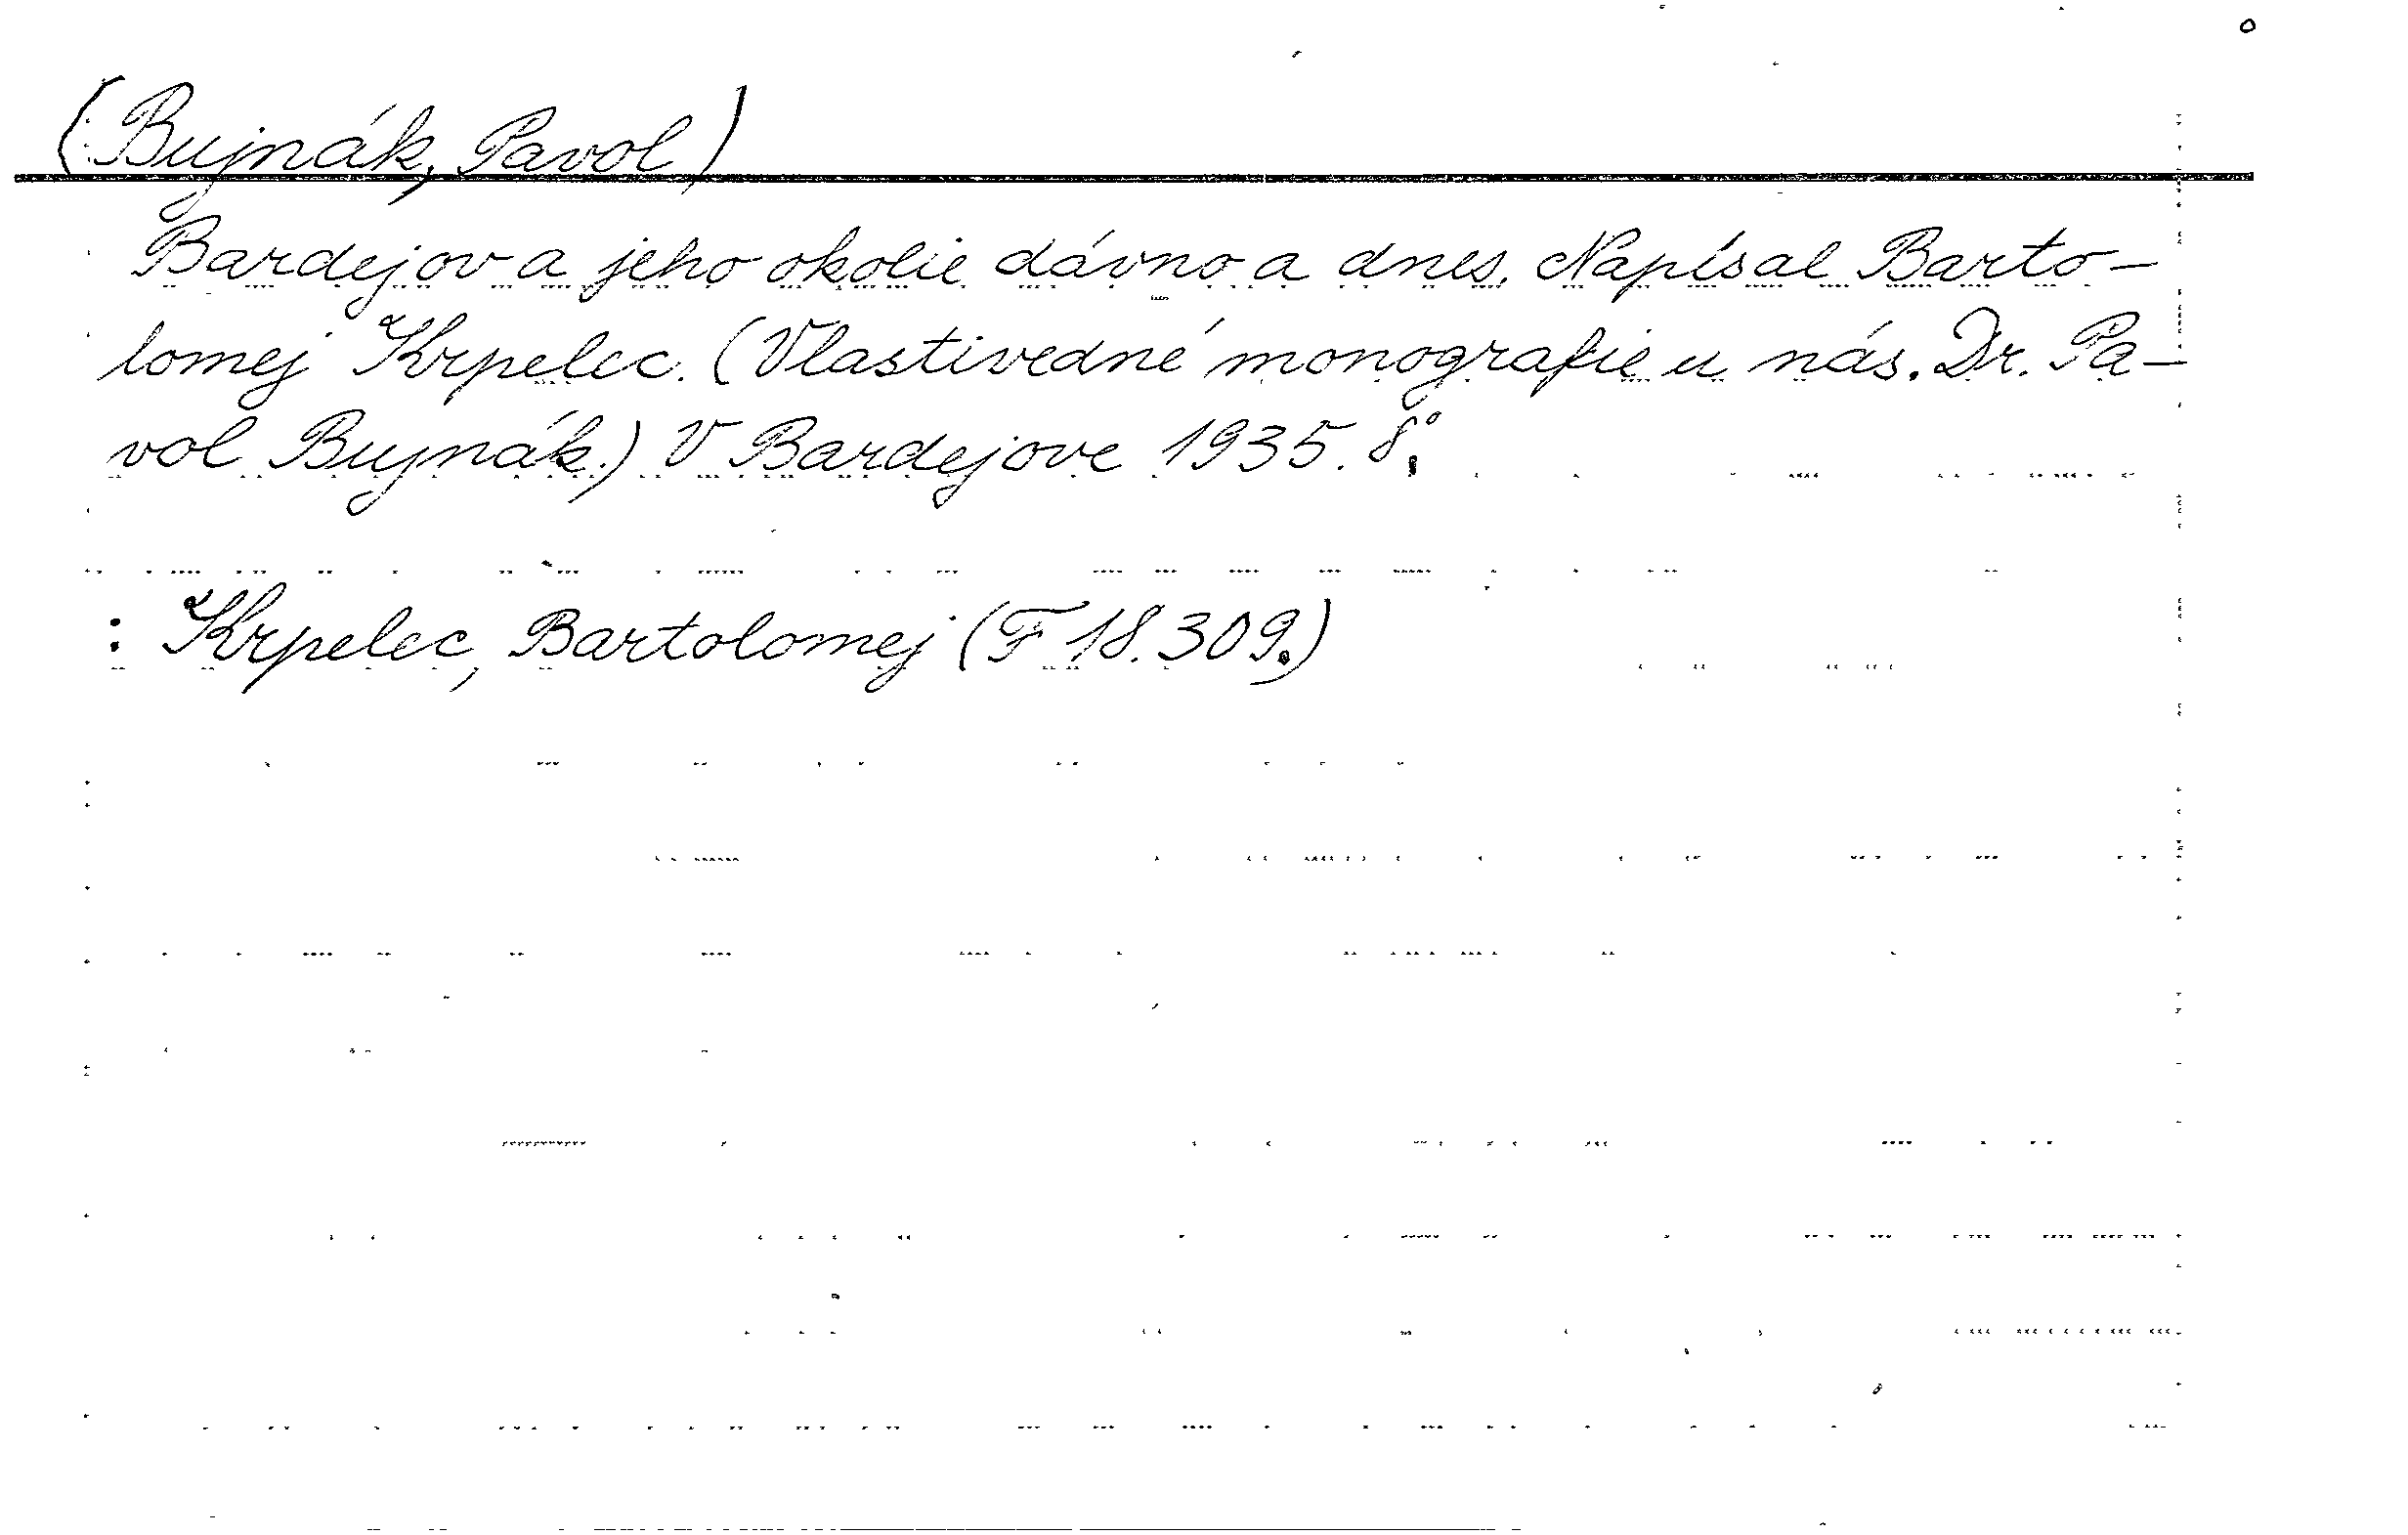 (Bujnák, Pavol)
Bardejov a jeho okolie dávno a dnes. Napísal Barto-
lomej Krpelec. (Vlastivedné monografie u nás. Dr. Pa-
vol Bujnák.) V Bardejove 1935. 8°.
: Krpelec, Bartolomej (F 18.309.)